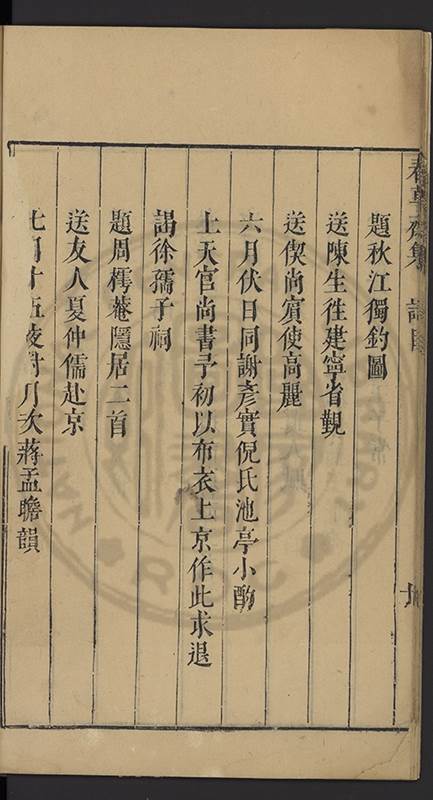 題秋江獨釣圖
送陳生徃建寧省覲
送偰尚賓使高麗
六月伏日同謝彦實倪氏池亭小酌
上天官尚書予初以布衣上京作此求退
謁徐孺子祠
題周樗菴隱居二首
送友人夏仲儒赴京
七月十五夜對月次蔣孟瞻韻